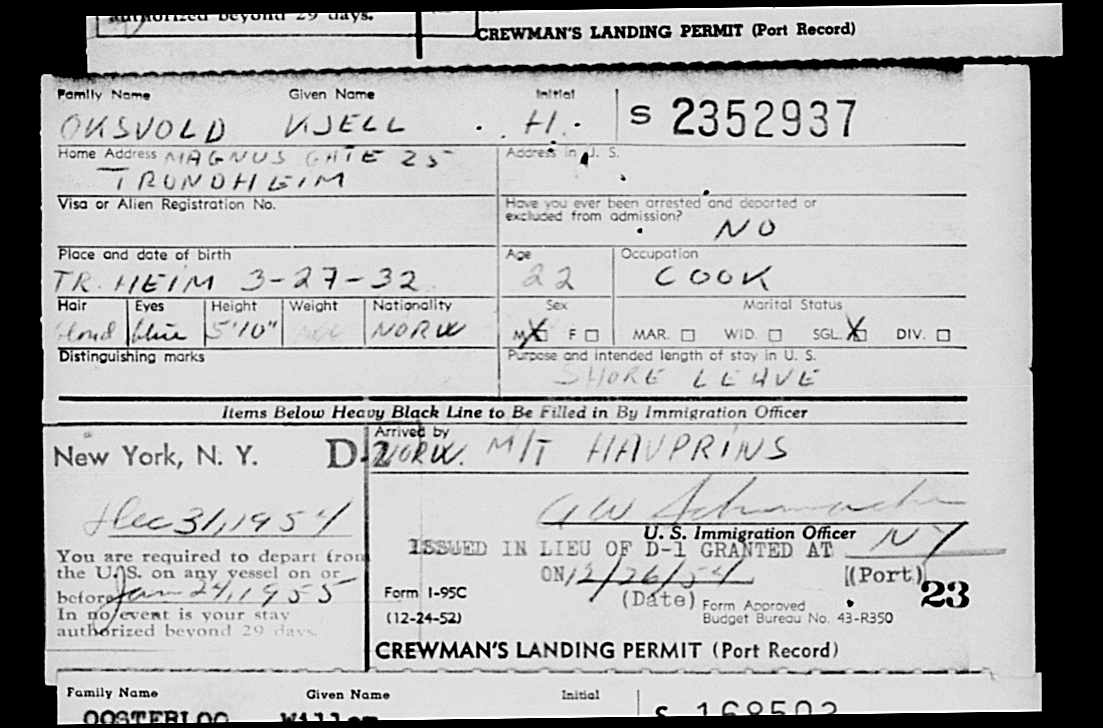 authorized beyond 29 days.
CREWMAN'S LANDING PERMIT (Port Record)
Family Name Given Name Initial
OKSVOLD KJELL H. S 2352937
Home Address MAGNUS GATE 25 Address in U. S.
TRONDHEIM
Visa or Alien Registration No. Have you ever been arrested and deported or
excluded from admission?
NO
Place and date of birth Age Occupation
TR. HEIM 3-27-32 22 COOK
Hair Eyes Height Weight Nationality Sex Marital Status
blond blue 5'10" NORW M X F □ MAR. □ WID. □ SGL. X DIV. □
Distinguishing marks Purpose and intended length of stay in U. S.
SHORE LEAVE
Items Below Heavy Black Line to Be Filled in By Immigration Officer
Arrived by
New York, N. Y. D-2 NORW. M/T HAVPRINS
Dec 31, 1954
U. S. Immigration Officer
You are required to depart from
the U. S. on any vessel on or
before Jan 24, 1955
In no event is your stay
authorized beyond 29 days.
ISSUED IN LIEU OF D-1 GRANTED AT NY
ON 12/26/54 (Port)
(Date)
Form I-95C
(12-24-52)
Form Approved
Budget Bureau No. 43-R350
23
CREWMAN'S LANDING PERMIT (Port Record)
Family Name Given Name Initial
OOSTERLOO Willem S 168502